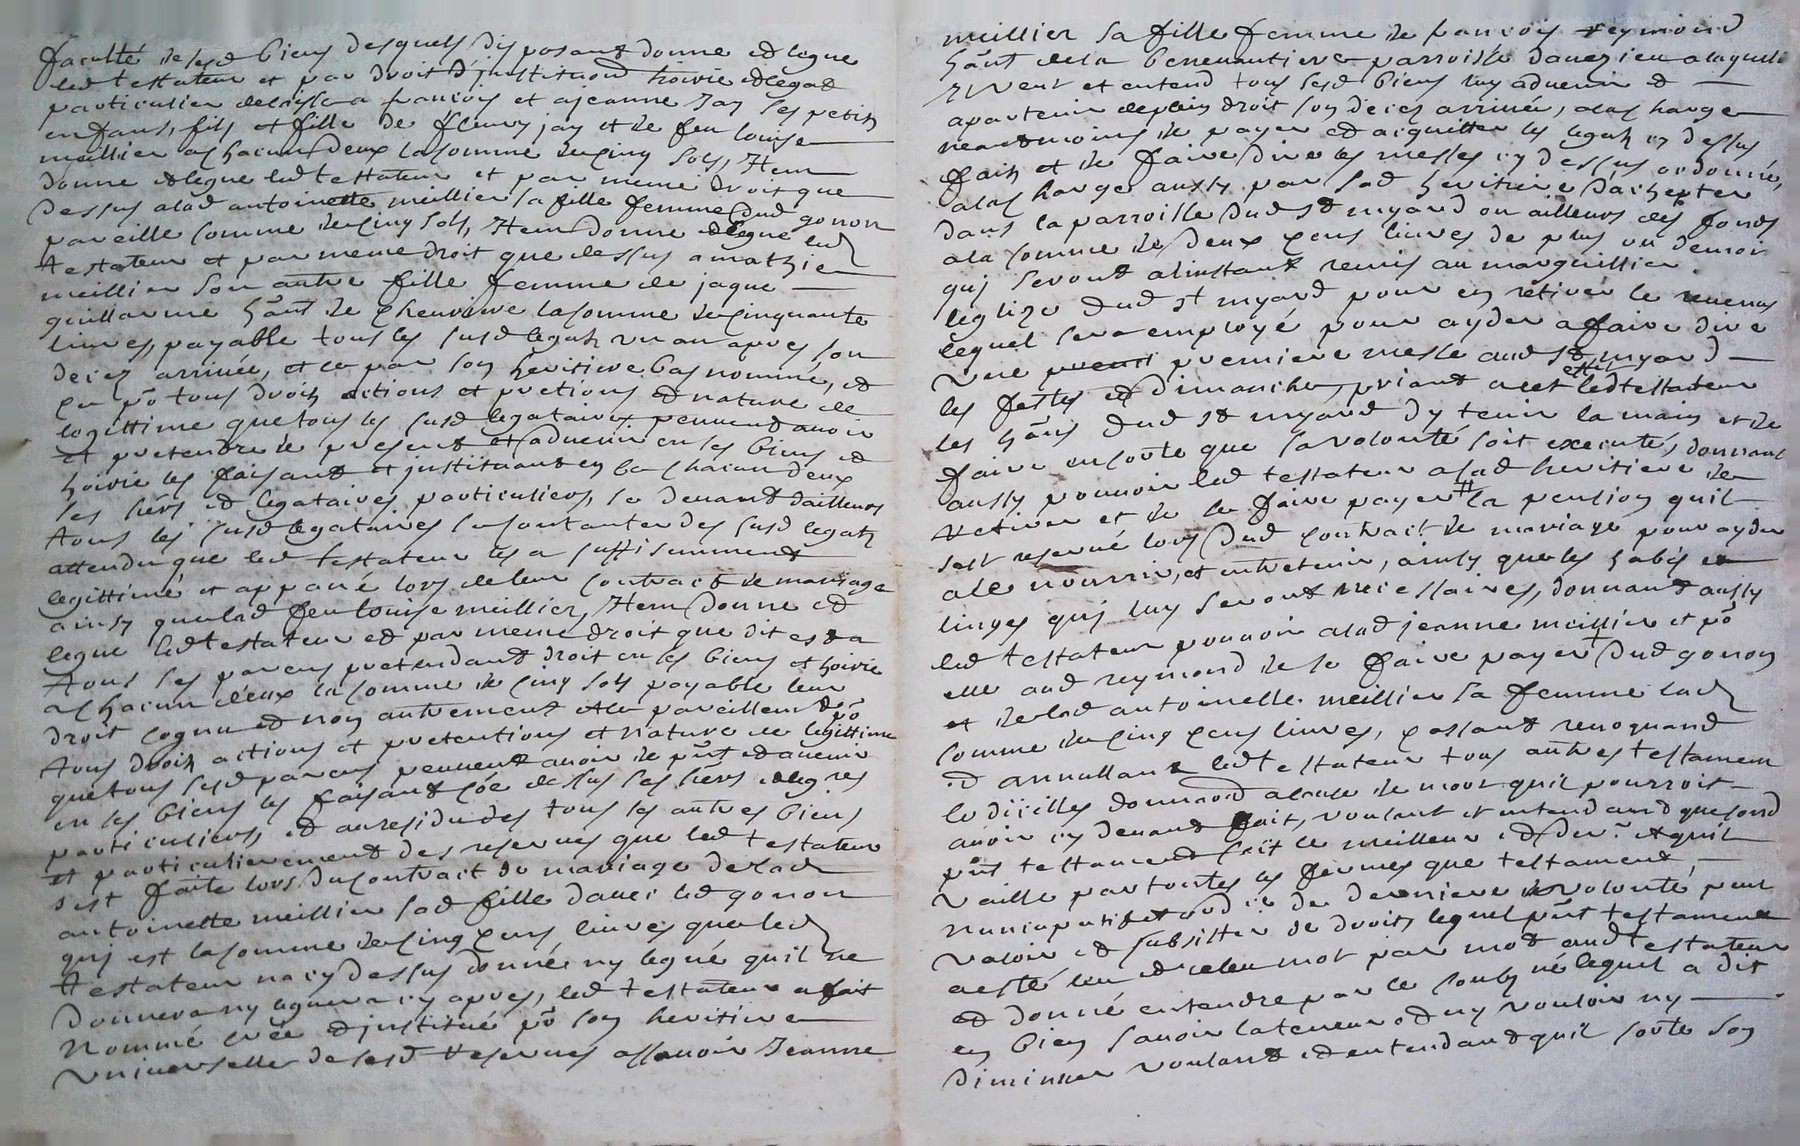 faculté de sesd biens desquels disposant donne et legue
led testateur et par droit d'justitution hoirie et legat
particulier delaisse a francois et a jeanne Jay ses petits
enfans, fils et fille de fleury jay et de feu louise
meillier a chacun deux la somme de cinq sols, Item
donne et legue led testateur et par meme droit que
dessus a lad antoinette meillier sa fille femme dud gonon
pareille somme de cinq sols, Item donne et legue led
testateur et par meme droit que dessus a mathie
meillier son autre fille femme de jaque
guillarme hãnt de chenviere la somme de cinquante
livres, payable tous les susd legats un an apres son
decez arrivée, et ce par son heritiere bas nommée, et
ce põ tous droits actions et pretions et nature de
legittime que tous les susd legataires peuvent avoir
et pretendre de present et advenir en ses biens et
hoirie les faisant et justituant en ce chacun deux
ses hérs et legataires particuliers, se devant dailleurs
tous les susd legataires se contanter des susd legats
attendu que led testateur les a suffisamment
legittimé et appané lors de leur contract de mariage
ainsy que lad feu louise meillier, Item donne et
legue led testateur et par meme droit que dit est a
tous ses parens pretendant droit en ses biens et hoirie
a chacun deux la somme de cinq sols payable leur
droit cognu et non autrement et ce pareillement põ
tous droits actions et pretentions et nature de legittime
que tous sesd parens peuvent avoir de pñt et avenir
en ses biens les faisant cõe dessus ses hérs et legres
particuliers, et au residu des tous ses autres biens
et particulierement des reserves que led testateur
sest faite lors du contract de mariage de lad
antoinette meillier sad fille davec led gonon
quj est la somme de cinq cens livres que led
testateur na cy dessus donné ny legué quil ne
donnera ny leguera cy apres, led testateur a fait
nommé créé et justitué põ son heritiere
universelle de sesd reserves assavoir Jeanne
meillier sa fille femme de francois reymond
hãnt de la berrenautiere parroisse daveizieu a laquelle
il veut et entend tous sesd biens luy advenir et
apartenir de plein droit son decez arrivée, a la charge
neantmoins de payer et acquitter les legats cy dessus
fait et de faire dire les messes cy dessus ordonné,
a la charge aussy par sad heritiere dachepter
dans la parroisse dud st myard ou ailleurs des fonds
a la somme de deux cens livres de plus ou de moin
quj seront a linstant remis au marguillier
leglize dud st myard pour en rétirer le revenus
lequel sera employé pour ayder a faire dire
une premiere messe aud st myard
les festes et dimanches, priant a cet effet led testateur
les hãns dud st myard dy tenir la main et de
faire en sorte que sa volonté soit executé, donnant
aussy pouvoir led testateur a sad heritiere de
retirer et de se faire payer # la pension quil
sest reservé lors dud contract de mariage pour ayder
a le nourrir, et entretenir, ainsy que les habis et
linges quj luy seront necessaires, donnant aussy
led testateur pouvoir a lad jeanne meillier et põ
elle aud reymond de se faire payer + dud gonon
et de lad antoinette meillier sa femme lad
somme de cinq cens livres, cassant revoquand
et annullant led testateur tous autres testamens
codicilles donnaõn a cause de mort quil pourroit
avoir cy devant fait, voulant et entendand que sond
pñt testament soit le meilleur et der. et quil
vaille par toutes les formes que testament
nuncupatif et ord de derniere volonté peut
valoir et subsister de droits lequel pñt testament
a esté leu et releu mot par mot aud testateur
et donné entendre par le soubs né lequel a dit
en bien savoir la teneur et ny vouloir ny
diminuer voulant et entendant quil sorte son